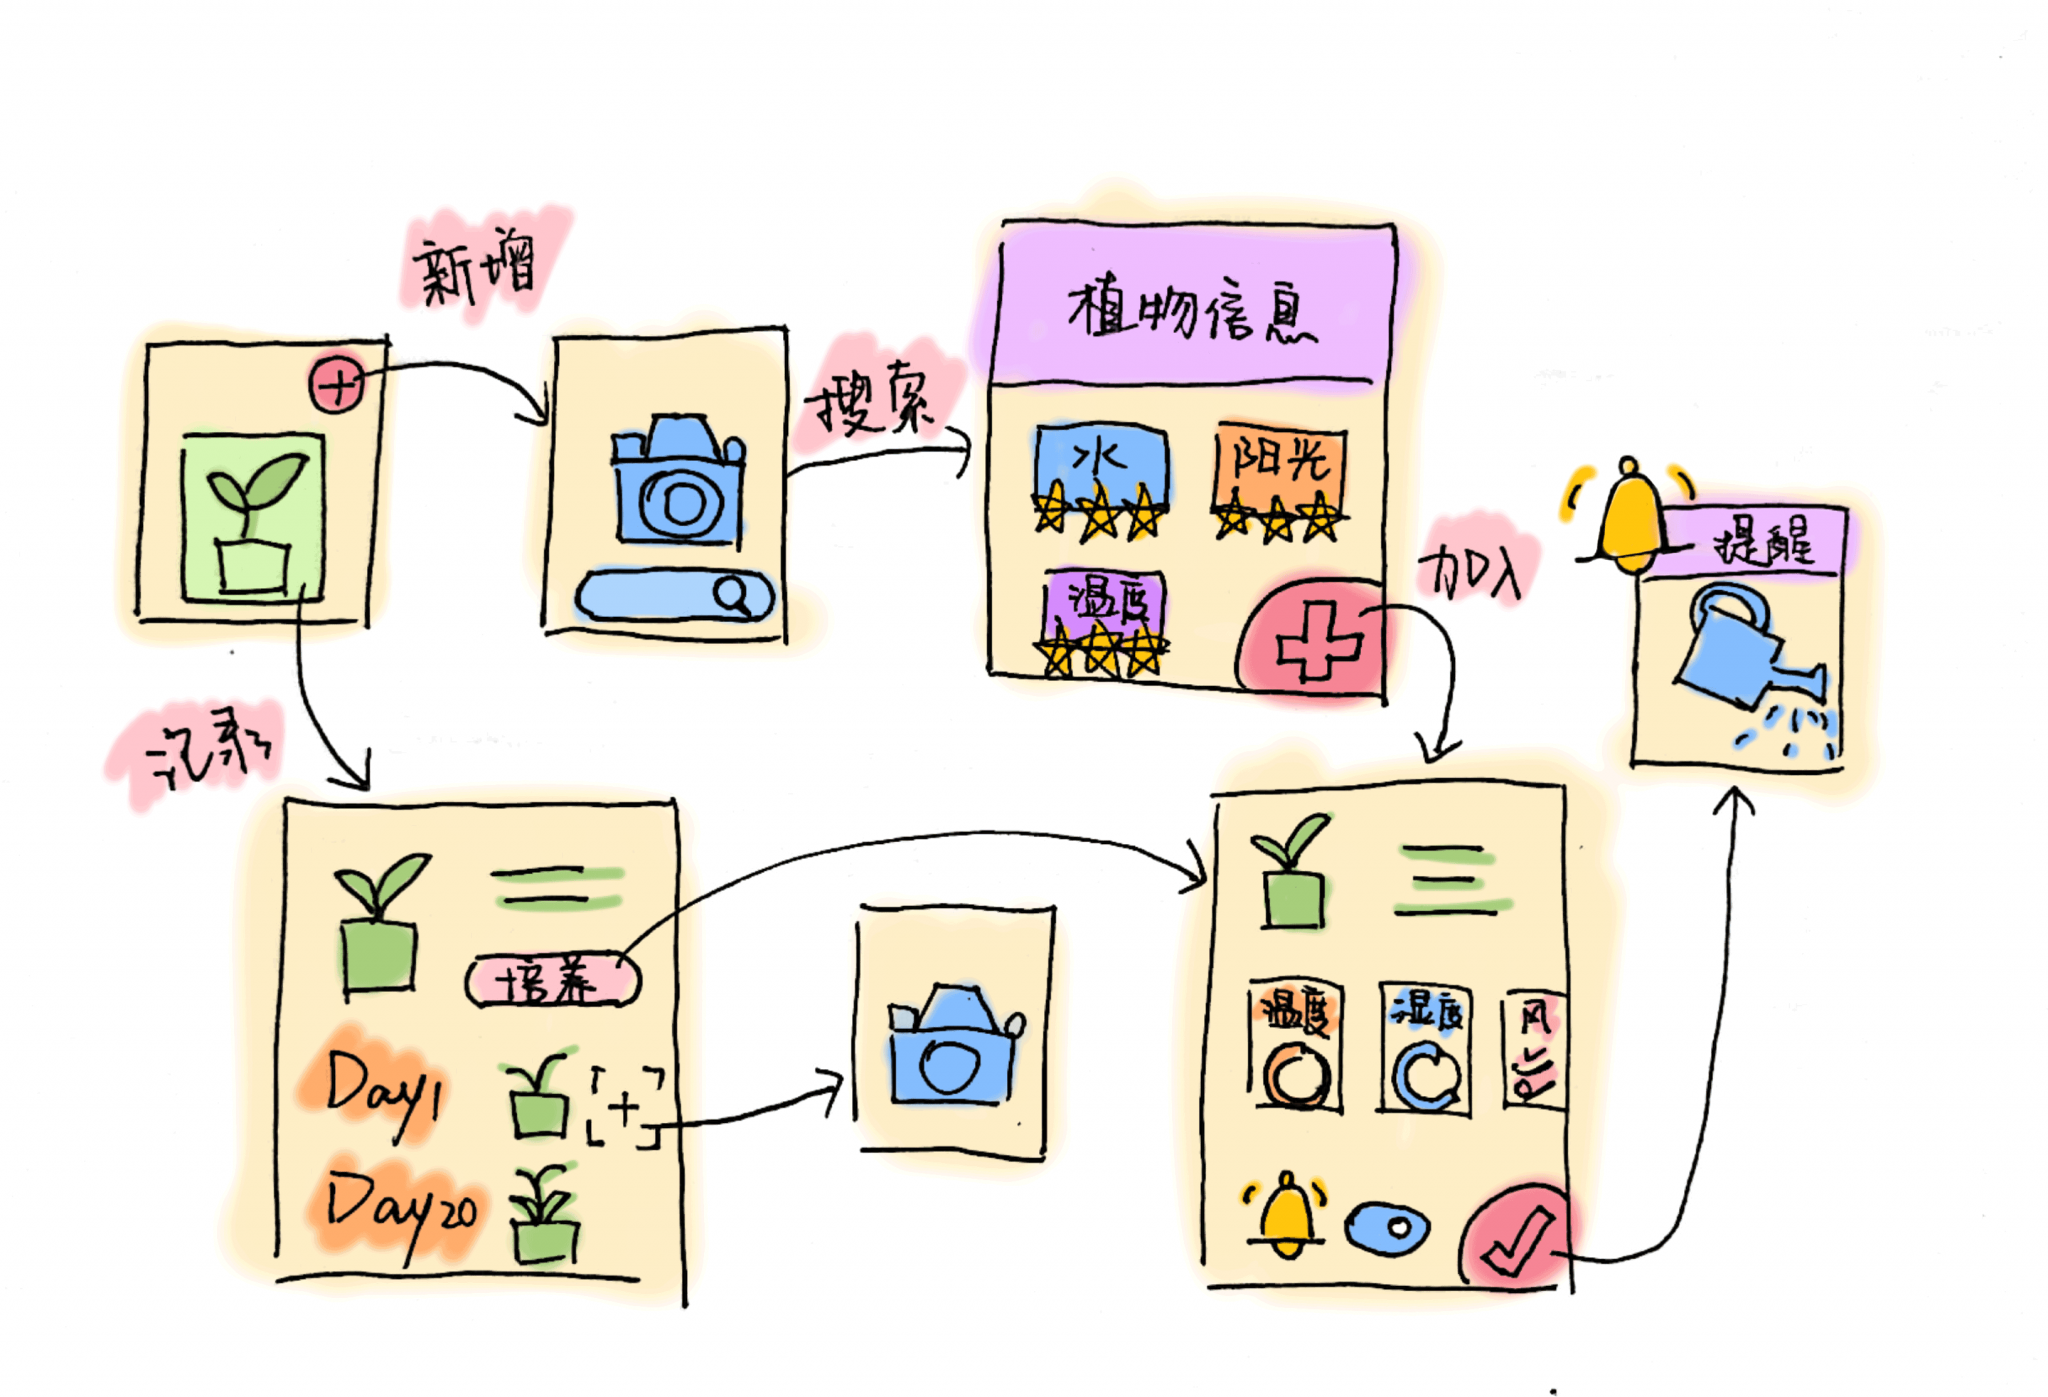 新增
搜索
植物信息
水
阳光
温度
加入
提醒
记录
培养
Day1
Day20
温度
湿度
风